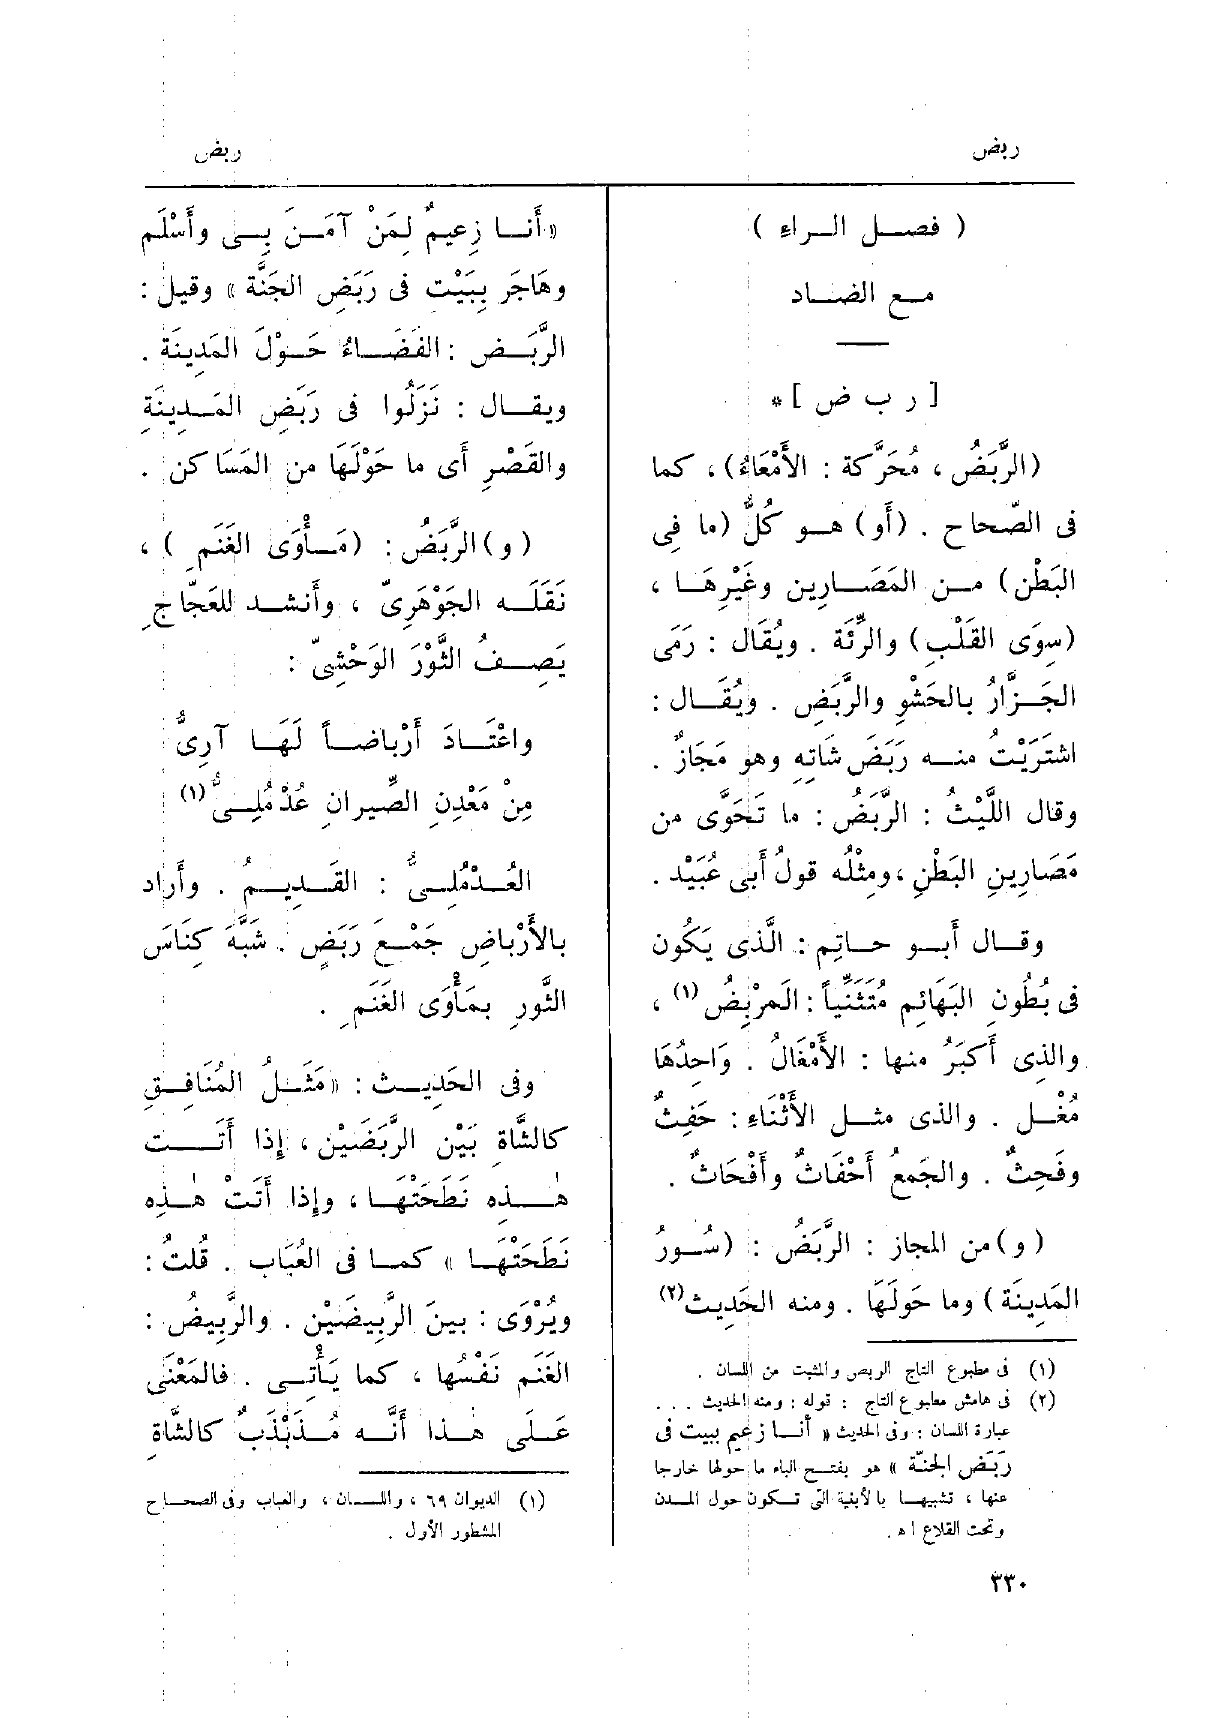 ربض
ربض
( فصــل الــراء )
مــع الضــاد
[ ر ب ض ] *
(الرَّبَضُ ، مُحَرَّكة : الأَمْعَاءُ) ، كما
فى الصّحاح . (أَو) هــو كُلُّ (ما فِى
البَطْن) مــن المَصَــارين وغَيْرِهَــا ،
(سِوَى القَلْب) والرِّئَة . ويُقَال : رَمَى
الجَــزَّارُ بالحَشْوِ والرَّبَضِ . ويُقَــال :
اشتَرَيْتُ منــه رَبَضَ شَاتِهِ وهو مَجَازٌ .
وقال اللَّيْثُ : الرَّبَضُ : ما تَحَوَّى من
مَصَارِينِ البَطْنِ ، ومِثْلُه قولُ أَبى عُبَيْد .
وقــال أَبــو حــاتِم : الَّذى يَكُون
فى بُطُونِ البَهَائم مُتَثَنِّياً : المَرْبِضُ (١) ،
والذى أَكبَرُ منها : الأَمْغَالُ . وَاحِدُهَا
مُغْــل . والذى مثــل الأَثْنَاءِ : حَفِثٌ
وفَحِثٌ . والجَمعُ أَحْفَاثٌ وأَفْحَاثٌ .
( و ) من المجاز : الرَّبَضُ : (سُــورُ
المَدِينَة ) وما حَولَهَا . ومنه الحَديث (٢)
(١) فى مطبوع التاج الربص والمثبت من اللسان .
(٢) فى هامش مطبوع التاج : قوله : ومنه الحديث . . .
عبارة اللسان : وفى الحديث « أنــا زعيم ببيت فى
رَبَض الجنّة » هو بفتــح الباء ما حولها خارجا
عنها ، تشبيهــا بالأبنية التى تــكون حول المــدن
وتحت القلاع ا ه .
٣٣٠
« أَنــا زِعيمٌ لِمَنْ آمَــنَ بِــى وأَسْلَم
وهَاجَر بِبَيْت فى رَبَضِ الجَنَّة » وقيل :
الرَّبَــض : الفَضَــاءُ حَــوْلَ المَدِينَة .
ويقــال : نَزَلُوا فى رَبَضِ المَــدِينَةِ
والقَصْرِ أَى ما حَوْلَهَا من المَسَاكن .
( و ) الرَّبَضُ : (مَــأْوَى الغَنَمِ ) ،
نَقَلَــه الجَوْهَرِىّ ، وأَنشــد للعَجّاجِ
يَصِــفُ الثَّوْرَ الوَحْشِىّ :
واعْتَــادَ أَرْبَاضــاً لَهَــا آرِىُّ
مِنْ مَعْدِنِ الصِّيرانِ عُدْمُلِــىُّ (١)
العُــدْمُلِــىُّ : القَــدِيــمُ . وأَراد
بالأَرْباضِ جَمْــعَ رَبَضٍ . شَبَّهَ كِنَاسَ
الثَّورِ بمَأْوَى الغَنَمِ .
وفى الحَدِيــث : « مَثَــلُ المُنَافِــقِ
كالشَّاة بَيْن الرَّبَضَيْن ، إِذا أَتَــت
هــذه نَطَحَتْهَــا ، وإِذا أَتَتْ هــذِه
نَطَحَتْهَــا » كمــا فى العُبَاب . قُلتُ :
ويُرْوَى : بينَ الرَّبِيضَيْن . والرَّبِيضُ :
الغَنَم نَفْسُها ، كما يَأْتِــى . فالمَعْنَى
عَــلَى هــذا أَنَّــه مُــذَبْذَبٌ كالشَّاةِ
(١) الديوان ٦٩ ، واللــسان ، والعباب وفى الصحــاح
المشطور الأول .